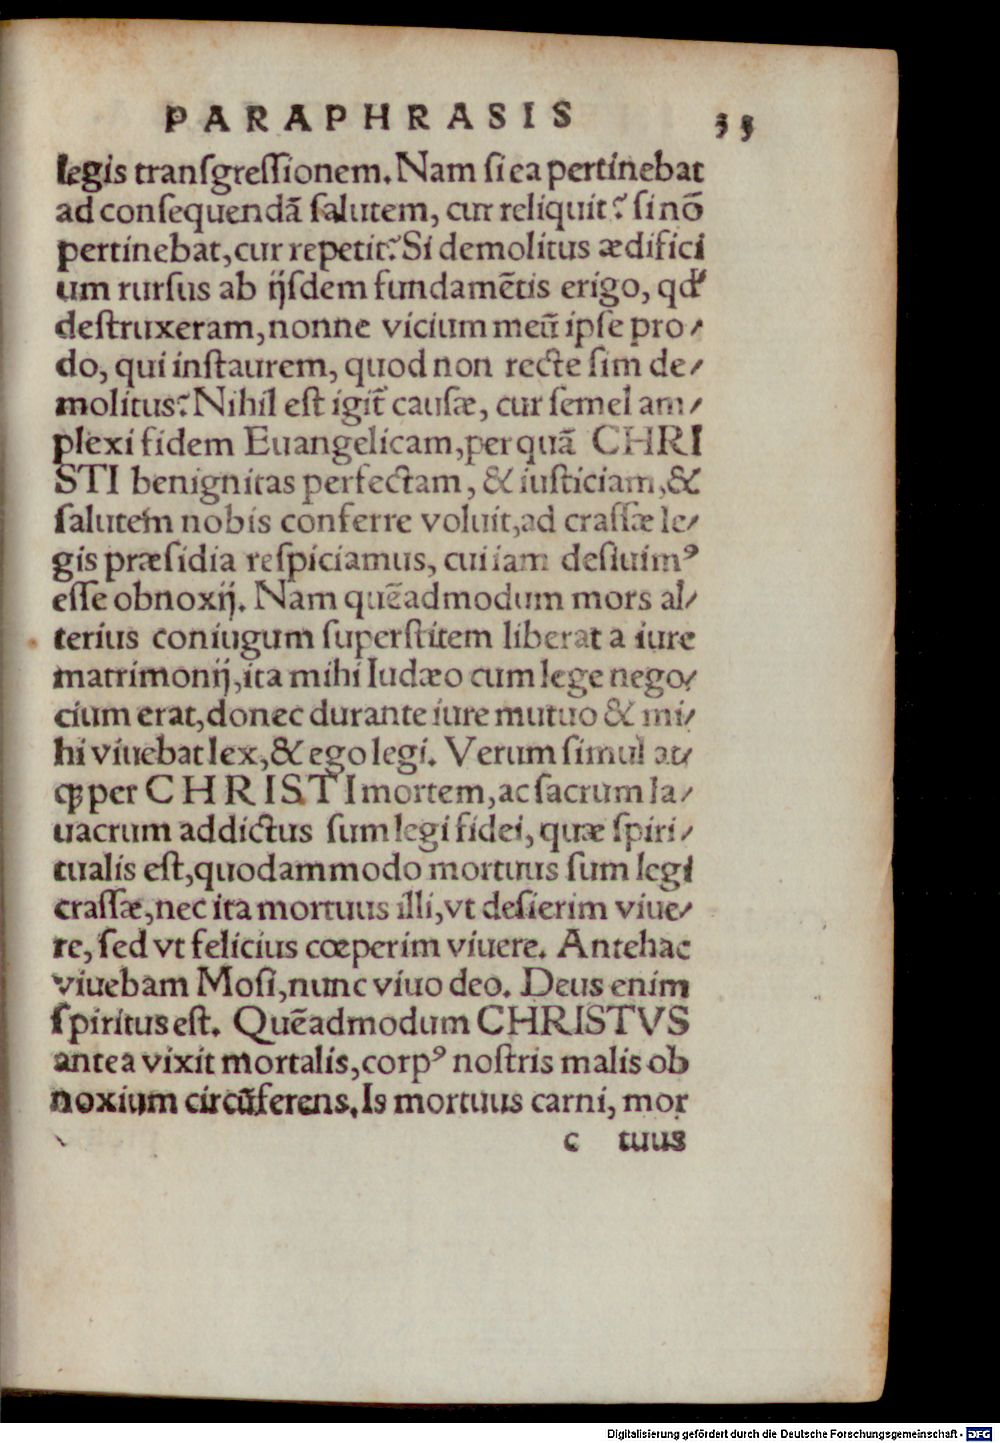 PARAPHRASIS 33
legis transgreſſionem. Nam ſi ea pertinebat
ad conſequendã ſalutem, cur reliquit? ſi nõ
pertinebat, cur repetit? Si demolitus ædifici
um rurſus ab ijſdem fundamẽtis erigo, qđ
deſtruxeram, nonne vicium meũ ipſe pro/
do, qui inſtaurem, quod non recte ſim de/
molitus? Nihil eſt igit̃ cauſæ, cur ſemel am/
plexi fidem Euangelicam, per quã CHRI
STI benignitas perfectam, & iuſticiam, &
ſalutem nobis conferre voluit, ad craſſæ le/
gis præſidia reſpiciamus, cui iam deſiuimꝰ
eſſe obnoxij. Nam quẽadmodum mors al/
terius coniugum ſuperſtitem liberat a iure
matrimonij, ita mihi Iudæo cum lege nego/
cium erat, donec durante iure mutuo & mi/
hi viuebat lex, & ego legi. Verum ſimul at/
ꝗ per CHRISTI mortem, ac ſacrum la/
uacrum addictus ſum legi fidei, quæ ſpiri/
tualis eſt, quodammodo mortuus ſum legi
craſſæ, nec ita mortuus illi, vt deſierim viue/
re, ſed vt felicius cœperim viuere. Antehac
viuebam Moſi, nunc viuo deo. Deus enim
ſpiritus eſt. Quẽadmodum CHRISTVS
antea vixit mortalis, corpꝰ noſtris malis ob
noxium circũferens. Is mortuus carni, mor
c tuus
Digitalisierung gefördert durch die Deutsche Forschungsgemeinschaft - DFG